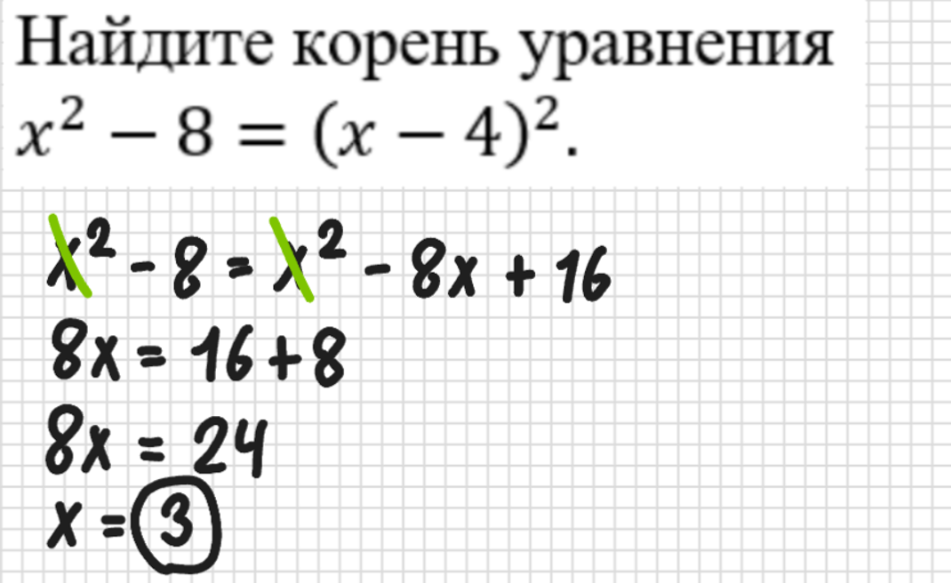 Найдите корень уравнения
x² − 8 = (x − 4)².
x² - 8 = x² - 8x + 16
8x = 16+8
8x = 24
x = 3